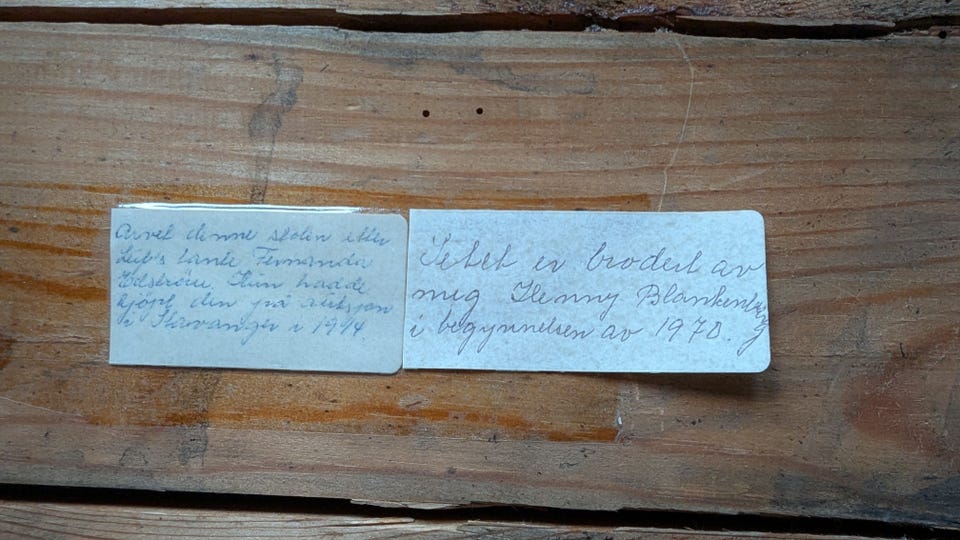 Arvet denne stolen etter
tante Fernanda
Edström. Hun hadde
kjöpt den på auksjon
i Stavanger i
Setet er brodert av
meg Henny Blankenberg
i begynnelsen av 1970.